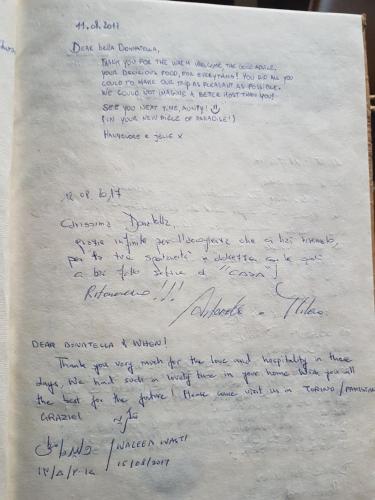 11.08.2017
DEAR BELLA DONNATELLA,
THANK YOU FOR THE WARM WELCOME THE GOOD ADVICE,
YOUR DELICIOUS FOOD, FOR EVERYTHING! YOU DID ALL YOU
COULD TO MAKE OUR TRIP AS PLEASANT AS POSSIBLE.
WE COULD NOT IMAGINE A BETER HOST THAN YOU!
SEE YOU NEXT TIME, AUNTY! ☺
(IN YOUR NEW PIECE OF PARADISE!)
HANNELORE & JELLE X
12.08.2017
Carissima Donatella,
grazie infinite per l'accoglienza che ci hai riservato,
per la tua spontaneità e dolcezza con le quali
ci hai fatto sentire a "CASA"!
Ritorneremo!!!
DEAR DONATELLA & WHEN!
Thank you very much for the love and hospitality in these
days. We had such a lovely time in your home. Wish you all
the best for the future! Please come visit us in TORINO / PAKISTAN
GRAZIE!
WALEED WASTI
15/08/2017